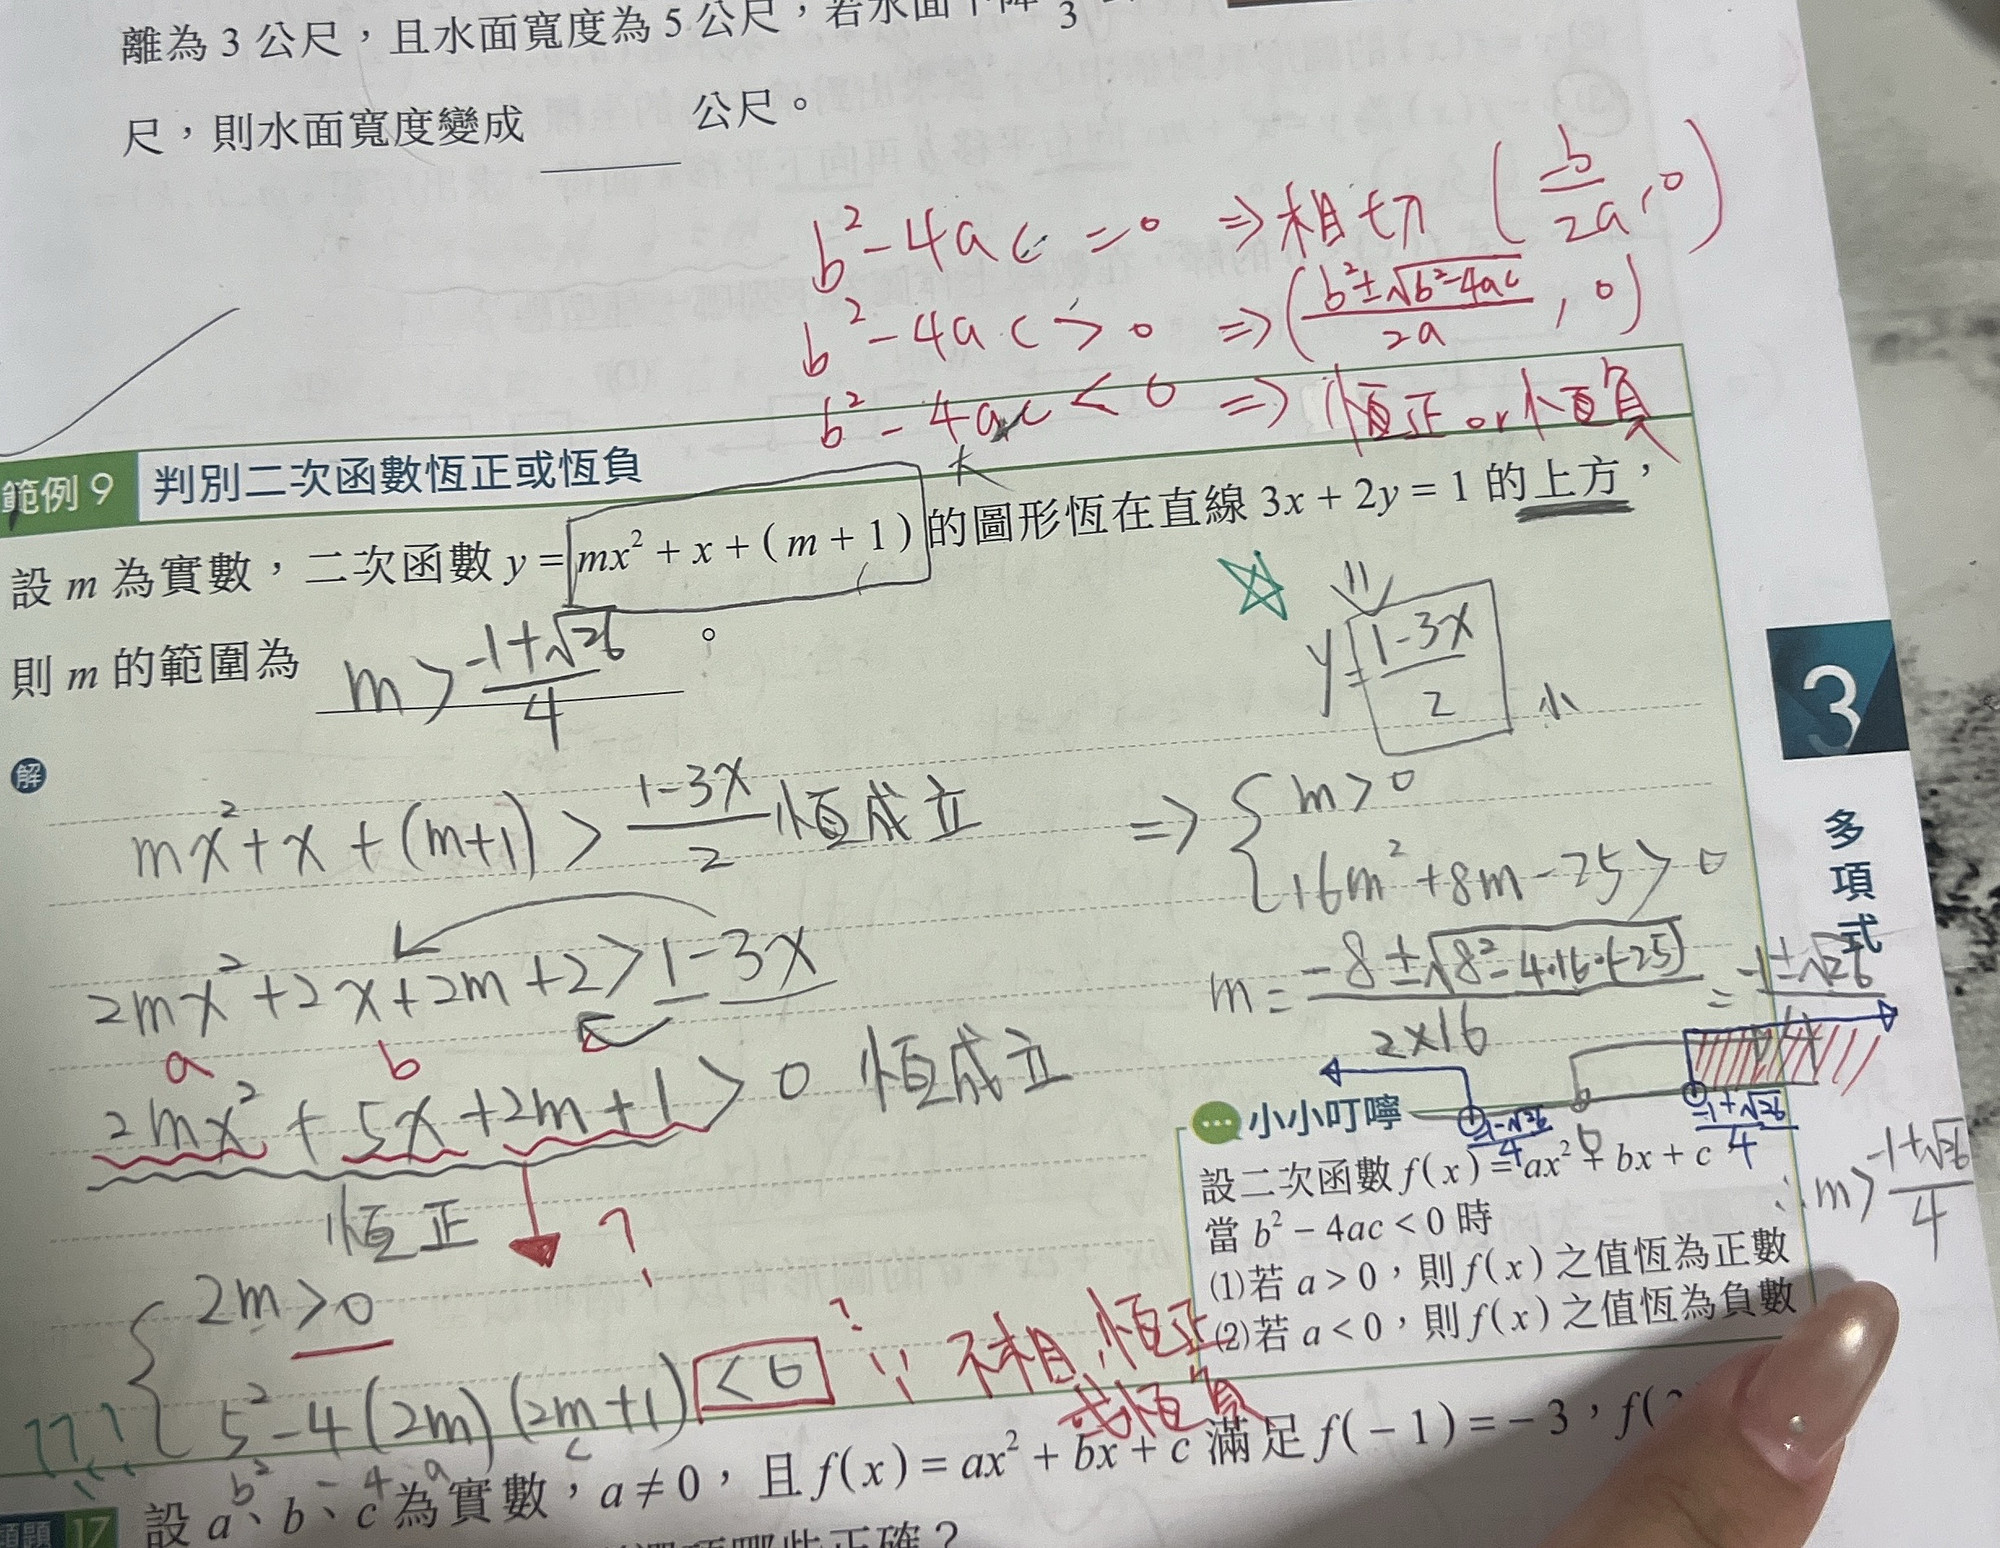 離為 3 公尺，且水面寬度為 5 公尺，若水面下降 3
尺，則水面寬度變成 ______ 公尺。
b²-4ac=0 ⇒相切 (-b/2a, 0)
b²-4ac>0 ⇒(b²±√b²-4ac/2a, 0)
b²-4ac<0 ⇒恆正or恆負
範例 9 判別二次函數恆正或恆負
大
設 m 為實數，二次函數 y = mx² + x + ( m + 1 ) 的圖形恆在直線 3x + 2y = 1 的上方，
則 m 的範圍為 m>-1+√26/4 。
y=1-3x/2 小
解
mx²+x+(m+1)>1-3x/2 恆成立
2mx²+2x+2m+2>1-3x
a b c
2mx²+5x+2m+1>0 恆成立
恆正 ?
2m>0
5²-4(2m)(2m+1)<0 ? ∵不相,恆正
或恆負
b² - 4 a c
⇒ m>0
16m²+8m-25>0
m=-8±√8²-4·16·(-25)/2×16=-1±√26/4
-1-√26/4 0 -1+√26/4
∴m>-1+√26/4
小小叮嚀
設二次函數 f(x) = ax² + bx + c
當 b² − 4ac < 0 時
(1)若 a > 0，則 f(x) 之值恆為正數
(2)若 a < 0，則 f(x) 之值恆為負數
3
多項式
類題 17 設 a、b、c 為實數，a ≠ 0，且 f(x) = ax² + bx + c 滿足 f(−1) = −3，f(
選項哪些正確？